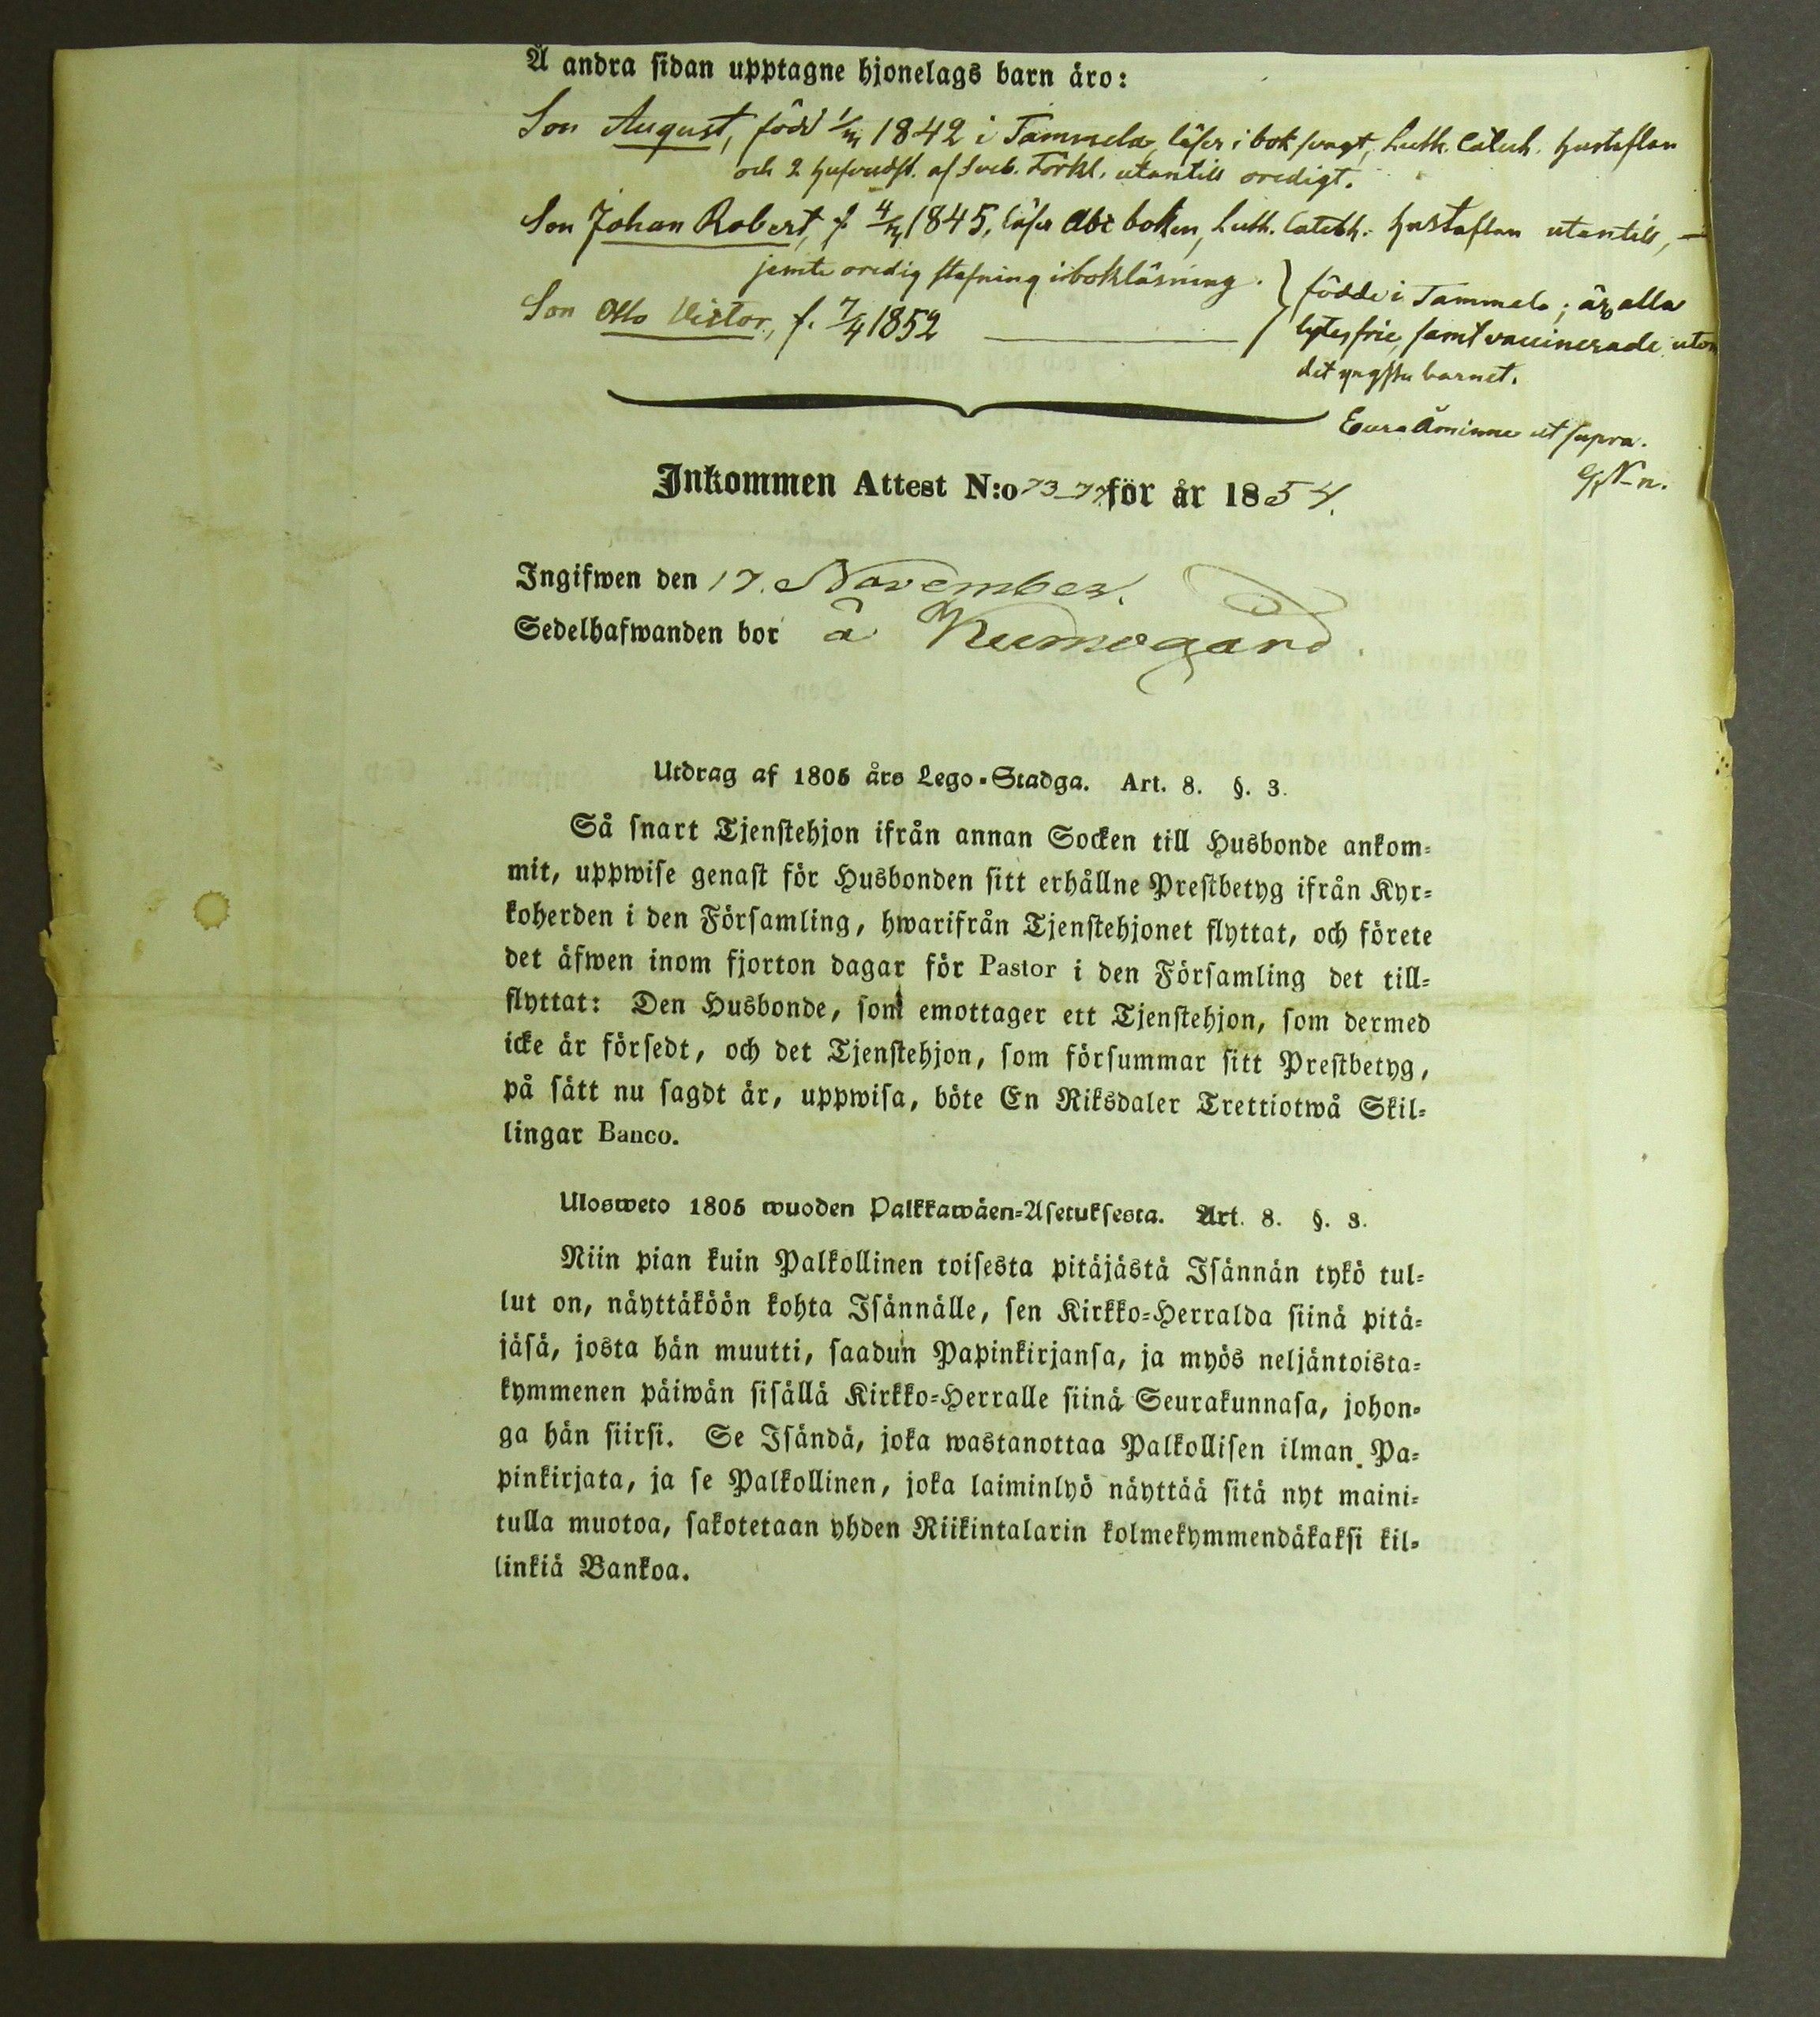 Å andra sidan upptagne hjonelags barn äro:
Son August, född 1842 i Tammela, läser i bok svagt, Luth. Catech. hustaflan
och 2 hufvudst. af Sveb. Förkl. utantill oredigt.
Son Johan Robert, f. 1845, läser Abc boken, Luth. Catech. hustaflan utantill, —
jemte oredig stafning i bokläsning.
Son Otto Victor, f. 7/4 1852
födde i Tammela; äro alla
lytesfrie, samt vaccinerade utom
det yngsta barnet.
Eura Åminne ut supra.
Inkommen Attest N:o 73-77 för år 1854.
Ingifwen den 17. November.
Sedelhafwanden bor å Kumogård.
Utdrag af 1805 års Lego-Stadga. Art. 8. §. 3.
Så snart Tjenstehjon ifrån annan Socken till Husbonde ankom-
mit, uppwise genast för Husbonden sitt erhållne Prestbetyg ifrån Kyr-
koherden i den Församling, hwarifrån Tjenstehjonet flyttat, och förete
det äfwen inom fjorton dagar för Pastor i den Församling det till-
flyttat: Den Husbonde, som emottager ett Tjenstehjon, som dermed
icke är försedt, och det Tjenstehjon, som försummar sitt Prestbetyg,
på sätt nu sagdt är, uppwisa, böte En Riksdaler Trettiotwå Skil-
lingar Banco.
Ulosweto 1805 wuoden Palkkawäen-Asetuksesta. Art. 8. §. 3.
Niin pian kuin Palkollinen toisesta pitäjästä Isännän tykö tul-
lut on, näyttäköön kohta Isännälle, sen Kirkko-Herralda siinä pitä-
jäsä, josta hän muutti, saadun Papinkirjansa, ja myös neljäntoista-
kymmenen päiwän sisällä Kirkko-Herralle siinä Seurakunnasa, johon-
ga hän siirsi. Se Isändä, joka wastanottaa Palkollisen ilman Pa-
pinkirjata, ja se Palkollinen, joka laiminlyö näyttää sitä nyt maini-
tulla muotoa, sakotetaan yhden Riikintalarin kolmekymmendäkaksi kil-
linkiä Bankoa.